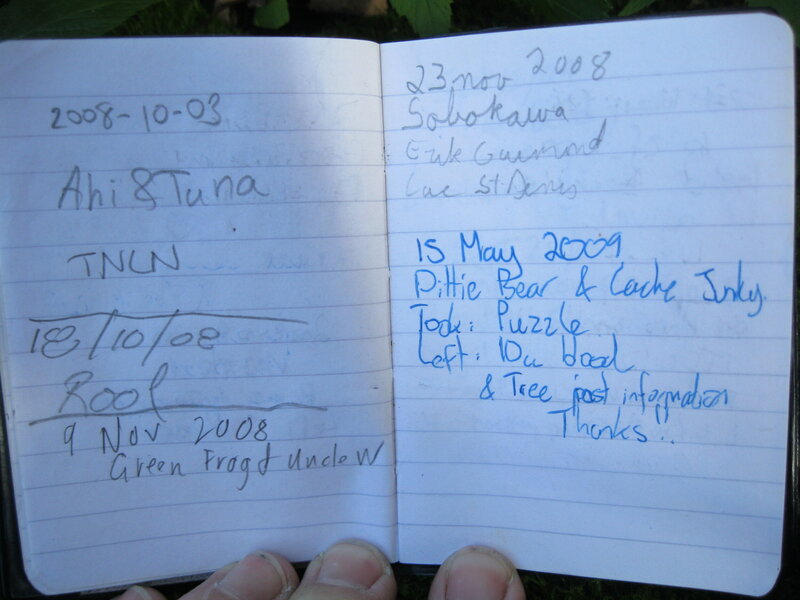 2008-10-03
Ahi & Tuna
TNLN
18/10/08
Rool
9 Nov 2008
Green Frogd Uncle W
23 nov 2008
Sobokawa
Erik
Luc St Denis
15 May 2009
Pittie Bear & Cache Junky
Took: Puzzle
Left:
& Tree post information
Thanks!!